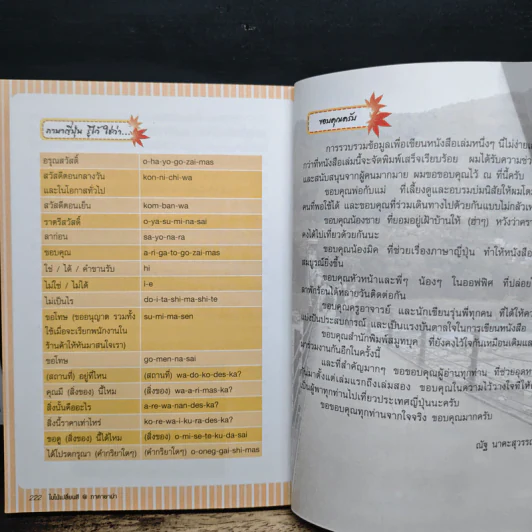 ภาษาญี่ปุ่น รู้ไว้ ใช้ว่า...
อรุณสวัสดิ์ o-ha-yo-go-zai-mas
สวัสดีตอนกลางวัน kon-ni-chi-wa
และในโอกาสทั่วไป
สวัสดีตอนเย็น kom-ban-wa
ราตรีสวัสดิ์ o-ya-su-mi-na-sai
ลาก่อน sa-yo-na-ra
ขอบคุณ a-ri-ga-to-go-zai-mas
ใช่ / ได้ / คำขานรับ hi
ไม่ใช่ / ไม่ได้ i-e
ไม่เป็นไร do-i-ta-shi-ma-shi-te
ขอโทษ (ขออนุญาต รวมทั้ง su-mi-ma-sen
ใช้เมื่อจะเรียกพนักงานใน
ร้านค้าให้หันมาสนใจเรา)
ขอโทษ go-men-na-sai
(สถานที่) อยู่ที่ไหน (สถานที่) wa-do-ko-des-ka?
คุณมี (สิ่งของ) นี้ไหม (สิ่งของ) wa-a-ri-mas-ka?
สิ่งนั้นคืออะไร a-re-wa-nan-des-ka?
สิ่งนี้ราคาเท่าไหร่ ko-re-wa-i-ku-ra-des-ka?
ขอดู (สิ่งของ) นี้ได้ไหม (สิ่งของ) o-mi-se-te-ku-da-sai
ได้โปรดกรุณา (คำกริยาใดๆ) (คำกริยาใดๆ) o-oneg-gai-shi-mas
222 ใบไม้เปลี่ยนสี
ขอบคุณครับ
การรวบรวมข้อมูลเพื่อเขียนหนังสือเล่มหนึ่งๆ นี้ไม่ง่าย
กว่าที่หนังสือเล่มนี้จะจัดพิมพ์เสร็จเรียบร้อย ผมได้รับความช่ว
และสนับสนุนจากผู้คนมากมาย ผมขอขอบคุณไว้ ณ ที่นี้ครับ
ขอบคุณพ่อกับแม่ ที่เลี้ยงดูและอบรมบ่มนิสัยให้ผมโต
คนที่พอใช้ได้ และขอบคุณที่ร่วมเดินทางไปด้วยกันแบบไม่กลัวเห
ขอบคุณน้องชาย ที่ยอมอยู่เฝ้าบ้านให้ (ฮ่าๆ) หวังว่าครา
คงได้ไปเที่ยวด้วยกันนะ
ขอบคุณน้องมิค ที่ช่วยเรื่องภาษาญี่ปุ่น ทำให้หนังสือ
สมบูรณ์ยิ่งขึ้น
ขอบคุณหัวหน้าและพี่ๆ น้องๆ ในออฟฟิศ ที่ปล่อยใ
ลาพักร้อนได้หลายวันติดต่อกัน
ขอบคุณครูอาจารย์ และนักเขียนรุ่นพี่ทุกคน ที่ได้ให้คว
แบ่งเป็นประสบการณ์ และเป็นแรงบันดาลใจในการเขียนหนังสือ
ขอบคุณสำนักพิมพ์สมุทบุค ที่ยังคงไว้ใจกันเหมือนเดิมและ
มาร่วมงานกันอีกในครั้งนี้
และที่สำคัญมากๆ ขอขอบคุณผู้อ่านทุกท่าน ที่ช่วยอุดห
กันมาตั้งแต่เล่มแรกถึงเล่มสอง ขอบคุณในความไว้วางใจที่ให้
เป็นผู้พาทุกท่านไปเที่ยวประเทศญี่ปุ่นนะครับ
ขอขอบคุณทุกท่านจากใจจริง ขอบคุณมากครับ
ณัฐ